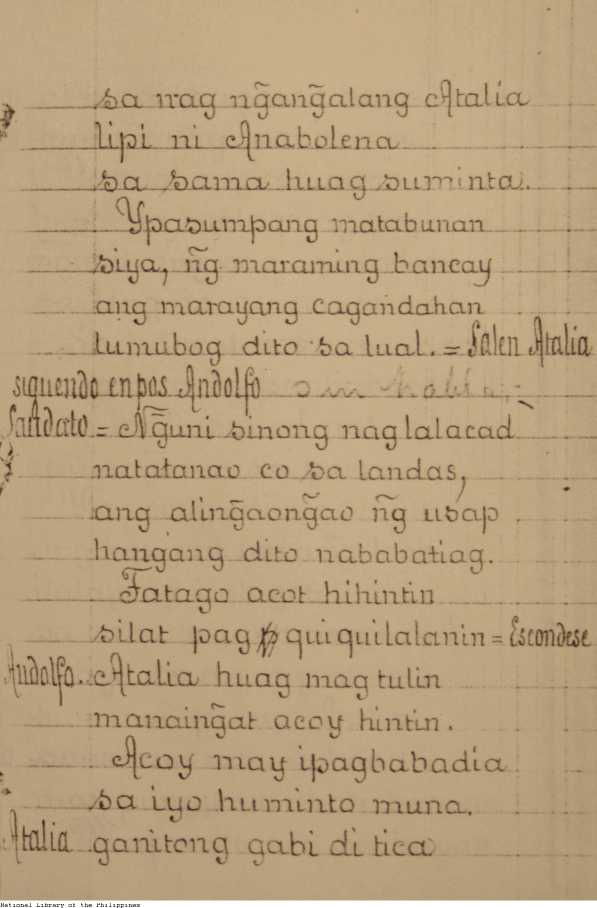 sa wag ng̃ang̃alang Atalia
lipi ni Anabolena
sa sama huag suminta.
Ypasumpang matabunan
siya, ñg maraming bancay
ang marayang cagandahan
lumubog dito sa lual. = Salen Atalia
siguendo en pos Andolfo
Sandato = Ng̃uni sinong naglalacad
natatanao co sa landas,
ang aling̃aong̃ao ñg usap
hangang dito nababatiag.
Tatago acot hihintin
silat pag quiquilalanin = Escondese
Andolfo. Atalia huag mag tulin
manaing̃at acoy hintin.
Acoy may ipagbabadia
sa iyo huminto muna.
Atalia ganitong gabi di tica
National Library of the Philippines